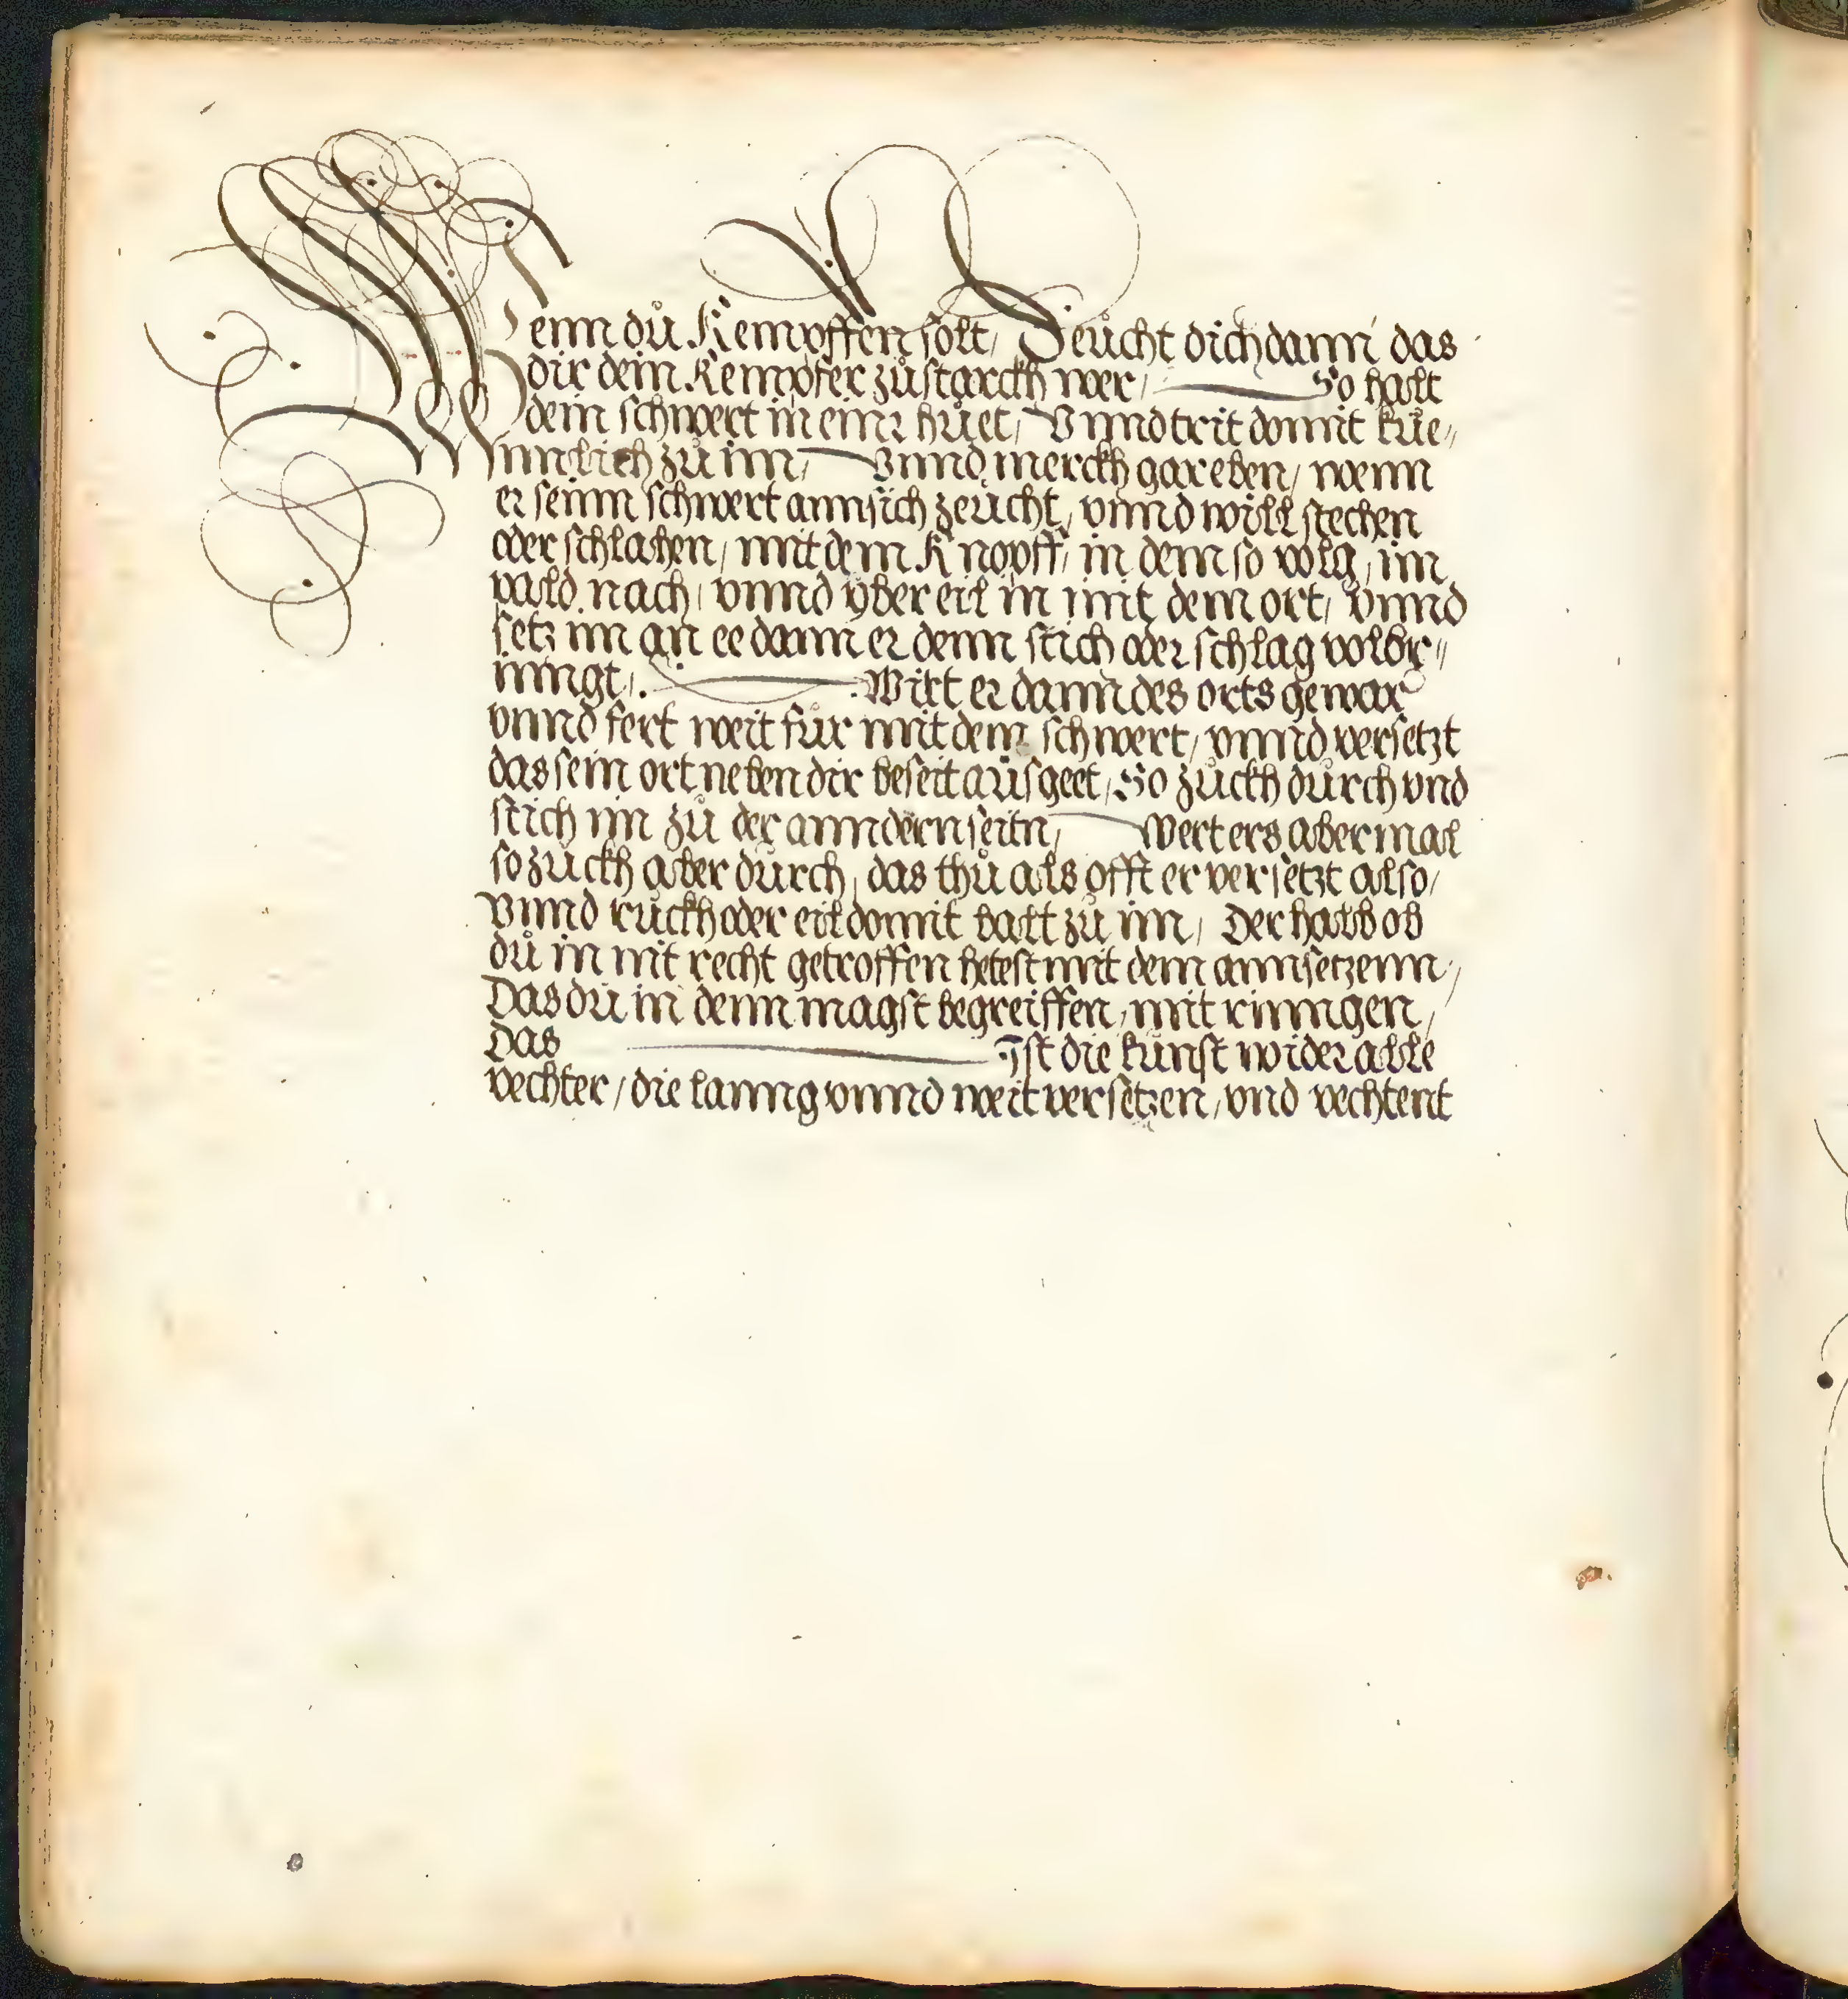 Wenn dů Kempffen solt, Deücht dich dann das
dir dein Kempfer zůstarckh wer, So halt
dein schwert in einr hůet, Vnnd trit domit küe„
nnlich zů im, Vnnd merckh gar eben, wenn
er seinn schwert ann sich zeücht, vnnd will stechen
oder schlahen, mit dem Knopff, in dem so volg, im
vald nach, vnnd ÿbereil in mit dem ort, Vnnd
setz im an ee dann er denn stich oder schlag volbr„
inngt. Wirt er dann des orts gewar
vnnd fert weit für mit dem schwert, vnnd versetzt
das sein ort neben dir beseit aüsgeet, So zuckh dürch vnd
stich im zů der annderen seitn, Wert ers abermal
so zückh aber dürch, das thů als offt er versetzt also,
Vnnd rückh oder eil domit balt zů im, Derhalb ob
dů in nit recht getroffen hetest mit dem annsetzenn,
Das dü in denn magst begreiffen, mit rinngen,
Das Ist die künst wider alle
vechter, die lanng vnnd weit versetzen, vnd vechtent